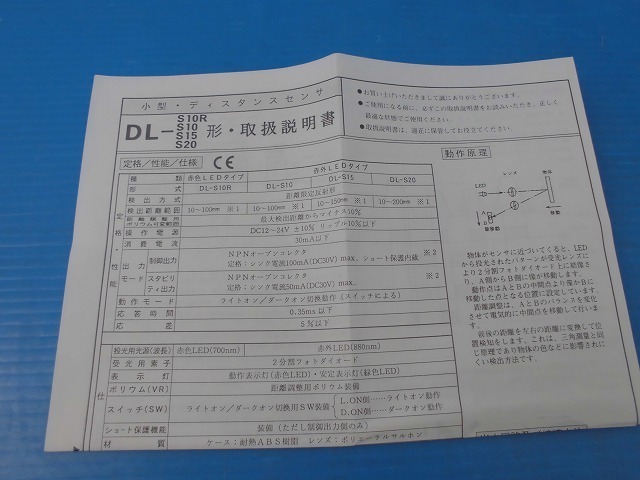 小型・ディスタンスセンサ
DL-S10R S10 S15 S20形・取扱説明書
●お買い上げいただきまして誠にありがとうございます。
●ご使用になる前に、必ずこの取扱説明書をお読みいただき、正しく
最適な状態でご使用ください。
●取扱説明書は、適正に保管してお役立てください。
定格／性能／仕様 CE
種類 赤色LEDタイプ 赤外LEDタイプ
形式 DL-S10R DL-S10 DL-S15 DL-S20
検出方式 距離限定反射形
検出距離範囲 10〜100mm ※1 10〜100mm ※1 10〜150mm ※1 10〜200mm ※1
ボリウム可変範囲 最大検出距離からマイナス10%
操作電源 DC12〜24V ±10% リップル10%以下
消費電流 30mA以下
定格・性能
出力モード
制御出力 NPNオープンコレクタ ※2
定格：シンク電流100mA(DC30V) max. ショート保護内蔵
スタビリティ出力 NPNオープンコレクタ ※2
定格：シンク電流50mA(DC30V) max.
動作モード ライトオン／ダークオン切換動作（スイッチによる）
応答時間 0.35ms以下
応差 5%以下
投光用光源(波長) 赤色LED(700nm) 赤外LED(880nm)
受光用素子 2分割フォトダイオード
表示灯 動作表示灯(赤色LED)・安定表示灯(緑色LED)
ボリウム(VR) 距離調整用ボリウム装備
仕
スイッチ(SW) ライトオン／ダークオン切換用SW装備 L.ON側……ライトオン動作
D.ON側……ダークオン動作
ショート保護機能 装備（ただし制御出力側のみ）
材質 ケース：耐熱ABS樹脂 レンズ：ポリエーテルサルホン
動作原理
レンズ
物体
LED
A
B
像移動
移動
物体がセンサに近づいてくると、LED
から投光されたパターンが受光レンズに
より2分割フォトダイオード上に結像さ
れ、A側からB側に像が移動します。
動作点はAとBの中間点より像がBに
移動した点となる位置に設定しています。
距離調整は、AとBのバランスを変化
させて電気的に中間点を移動して行いま
す。
前後の距離を左右の距離に変換して位
置検知をします。これは、三角測量と同
じ原理であり物体の色などに影響されに
くい検出方法です。